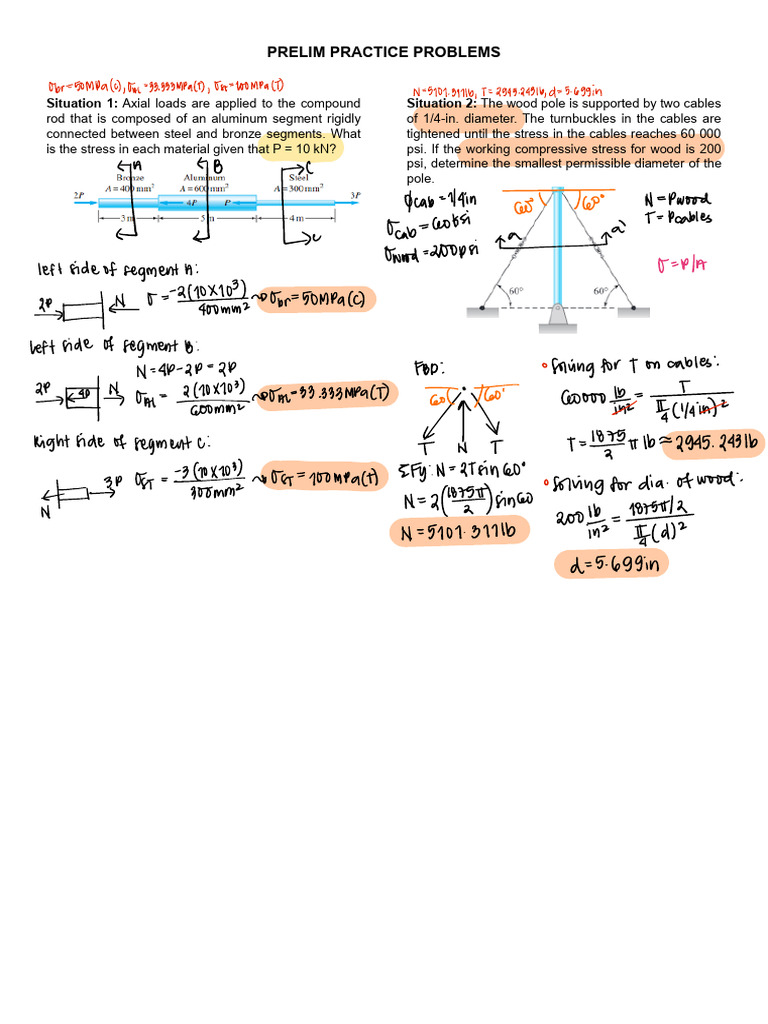 PRELIM PRACTICE PROBLEMS
σbr=50MPa(C), σAl=33.333MPa(T), σst=100MPa(T)
Situation 1: Axial loads are applied to the compound
rod that is composed of an aluminum segment rigidly
connected between steel and bronze segments. What
is the stress in each material given that P = 10 kN?
A B C
Bronze Aluminum Steel
A = 400 mm² A = 600 mm² A = 300 mm²
2P 4P P 3P
3 m 5 m 4 m
C
left side of segment A:
2P N σ = -2(10×10³) / 400mm² → σbr = 50MPa(C)
left side of segment B:
N = 4P-2P = 2P
2P 4P N σAl = 2(10×10³) / 600mm² → σAL = 33.333MPa(T)
Right side of segment C:
N 3P σST = -3(10×10³) / 300mm² → σST = 100MPa(T)
N=5101.311lb, T=2945.243lb, d=5.699in
Situation 2: The wood pole is supported by two cables
of 1/4-in. diameter. The turnbuckles in the cables are
tightened until the stress in the cables reaches 60 000
psi. If the working compressive stress for wood is 200
psi, determine the smallest permissible diameter of the
pole.
ϕcab = 1/4in
σcab = 60ksi
σwood = 200psi
60° 60°
a a'
60° 60°
N = Pwood
T = Pcables
σ = P/A
FBD:
60° 60°
T N T
ΣFy: N = 2Tsin60°
N = 2(1875π/2)sin60
N = 5101.311lb
• Solving for T on cables:
60000 lb/in² = T / π/4(1/4in)²
T = 1875/2 π lb ≈ 2945.243lb
• Solving for dia. of wood:
200 lb/in² = 1875π/2 / π/4(d)²
d = 5.699in